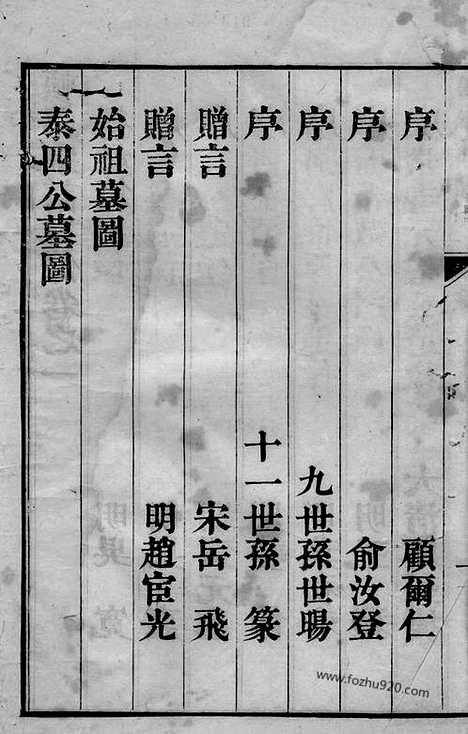 序 顧爾仁
序 俞汝登
序 九世孫世暘
序 十一世孫 篆
贈言 宋岳 飛
贈言 明趙宧光
始祖墓圖
泰四公墓圖
www.fozhu920.com